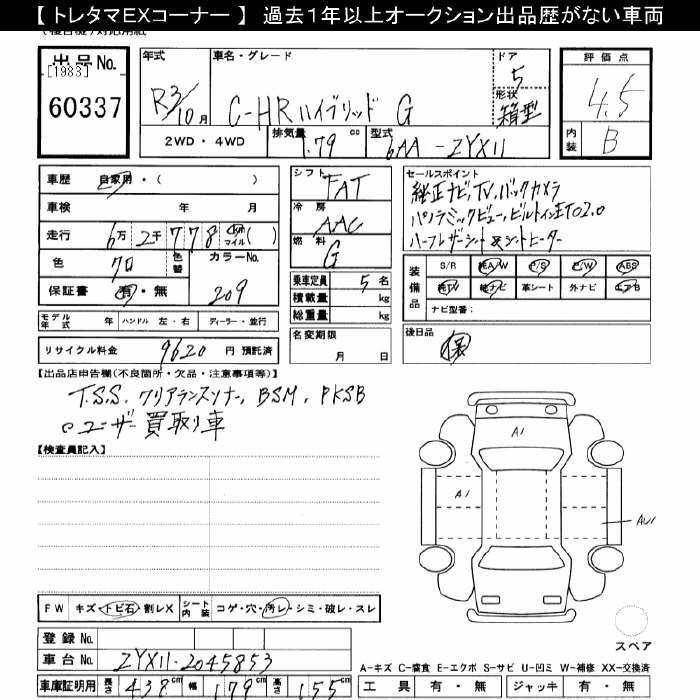 【トレタマEXコーナー】 過去1年以上オークション出品歴がない車両
出品No. [1983] 60337
年式 R3/10月 2WD・4WD
車名・グレード C-HR ハイブリッド G
排気量 1.79 cc 型式 6AA-ZYX11
ドア 5 形状 箱型
評価点 4.5
内装 B
車歴 自家用・( )
車検 年 月
走行 6万2千778 km マイル( )
色 クロ 色替 カラーNo. 209
保証書 有・無
モデル年式 年 ハンドル 左・右 ディーラー・並行
リサイクル料金 9620 円 預託済
シフト FAT
冷房 AAC
燃料 G
乗車定員 5 名
積載量 kg
総重量 kg
名変期限 月 日
セールスポイント
純正ナビ,TV,バックカメラ
パノラミックビュー,ビルトインETC2.0
ハーフレザーシート&シートヒーター
装備品 S/R 純A/W P/S P/W ABS
純TV 純ナビ 革シート 外ナビ エアB
ナビ型番:
後日品 保
【出品店申告欄(不良箇所・欠品・注意事項等)】
T.S.S. クリアランスソナー, BSM, PKSB
○ユーザー買取り車
【検査員記入】
A1
A1
AU1
FW キズ・トビ石・割レX シート内装 コゲ・穴・汚レ・シミ・破レ・スレ
登録No.
車台No. ZYX11-2045853
スペア
A-キズ C-腐食 E-エクボ S-サビ U-凹ミ W-補修 XX-交換済
車庫証明用 長さ 438 cm 幅 179 cm 高さ 155 cm
工具 有・無 ジャッキ 有・無